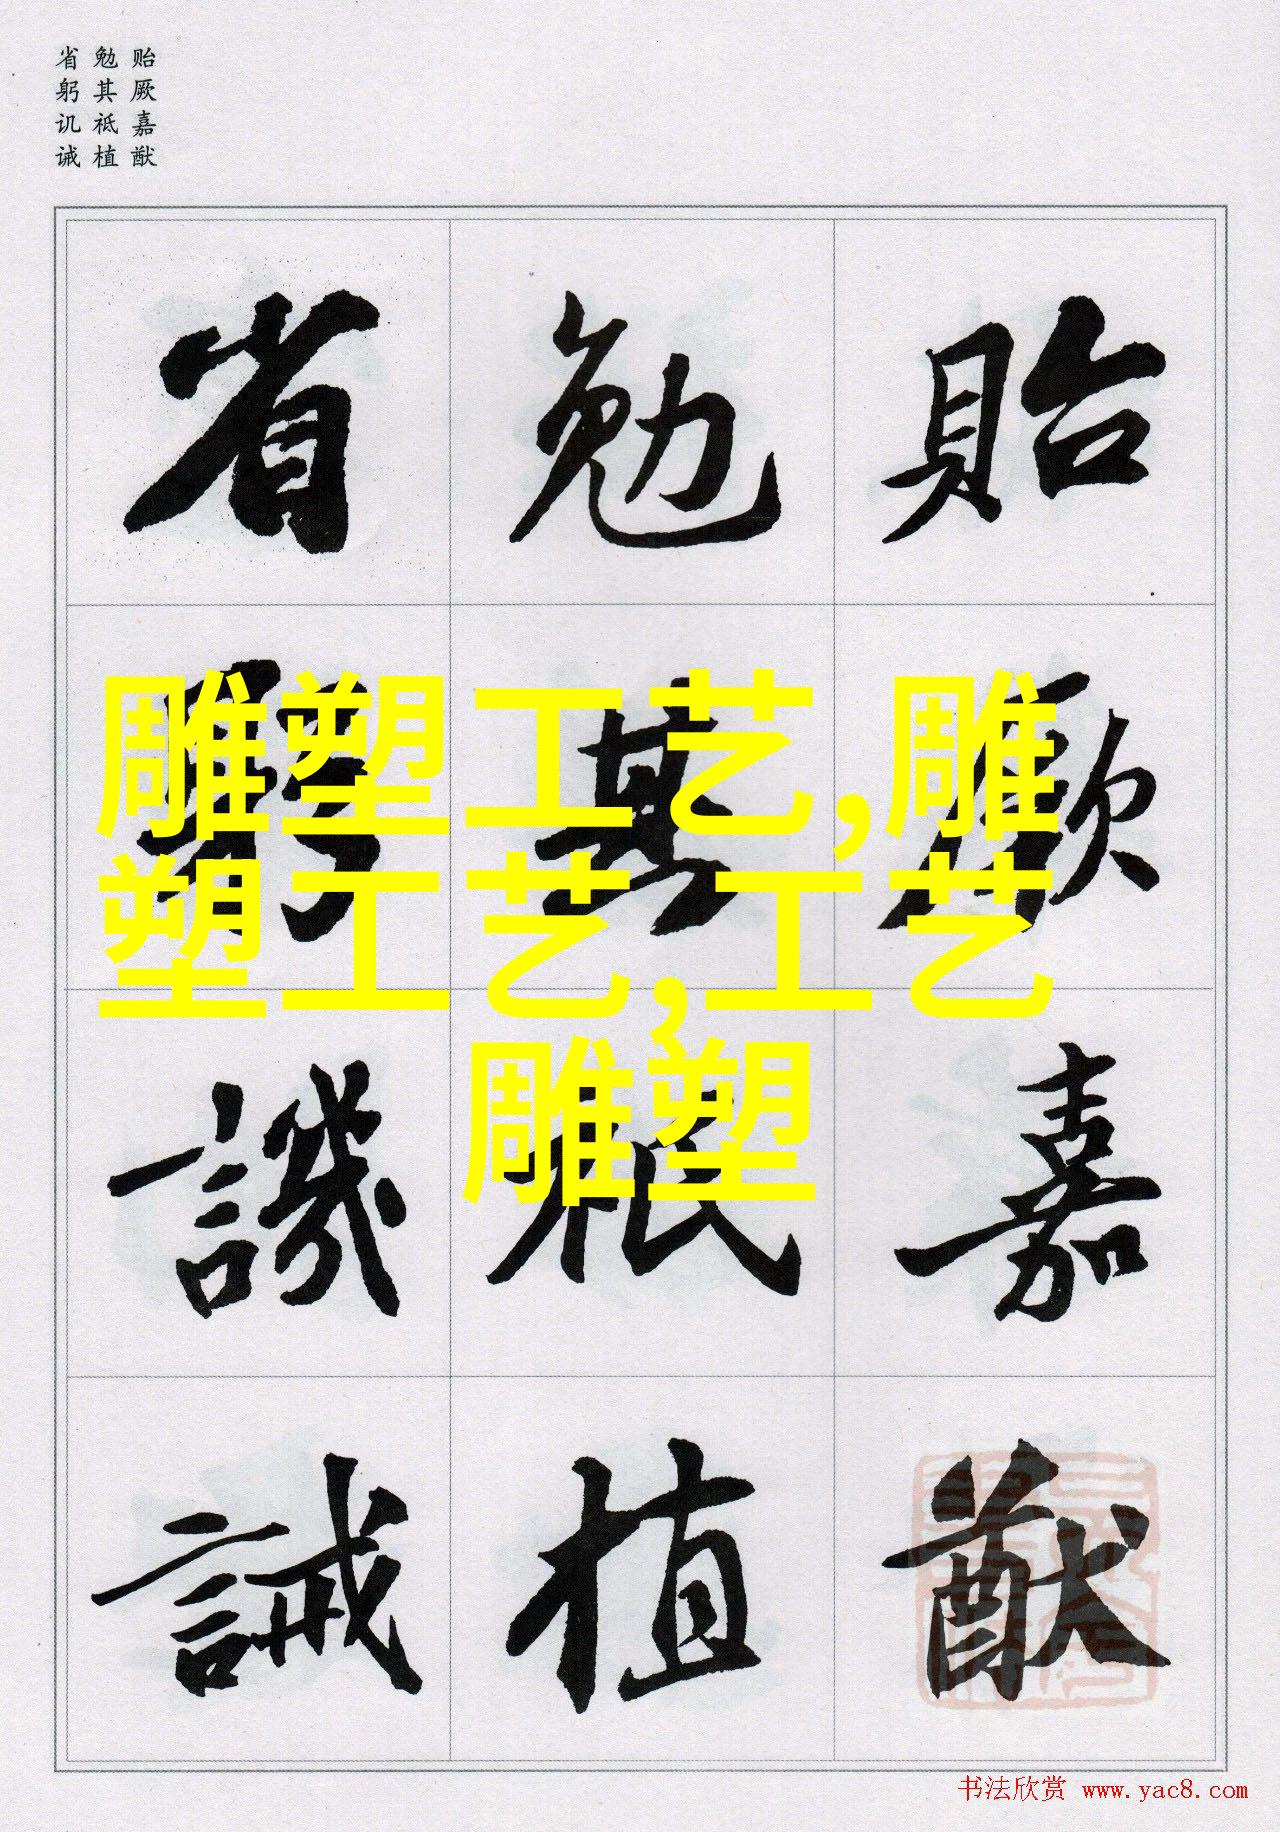 贻厥嘉猷
勉其祗植
省躬讥诫
貽厥嘉猷
勉其祗植
省躬譏誡
雕塑工艺,雕
塑工艺,工艺
雕塑
书法欣赏 www.yac8.com